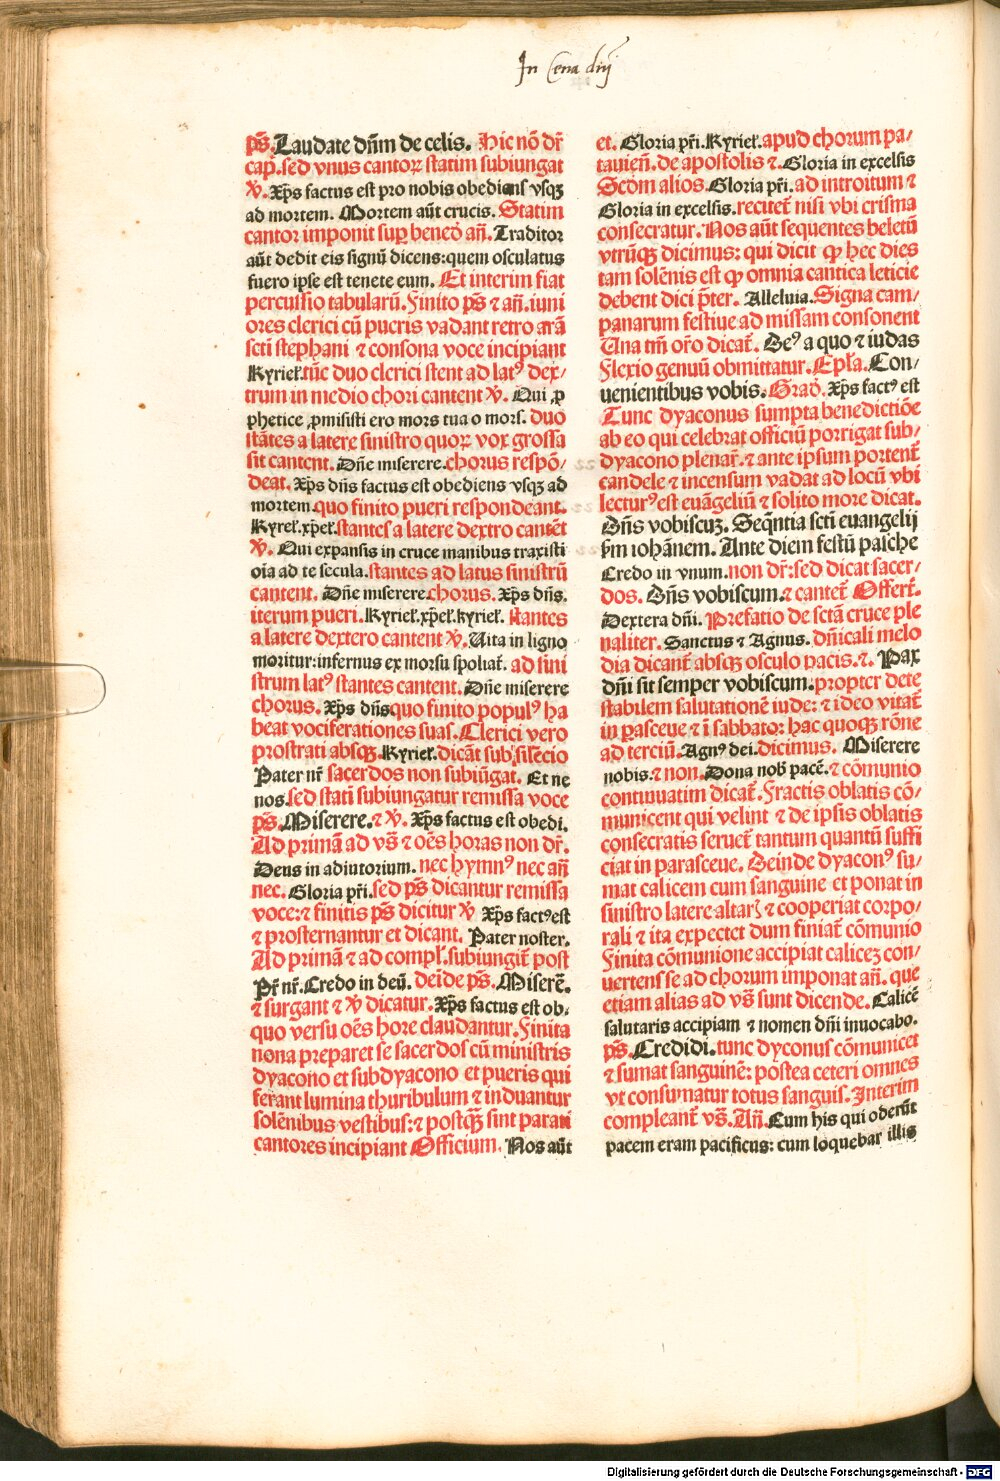 In Cena dnj
ps̄. Laudate dn̄m de celis. Hic nō dr̄
cap̄. sed vnus cantoꝝ statim subiungat
℣. Xp̄s factus est pro nobis obediens vsqꝫ
ad mortem. Mortem aūt crucis. Statim
cantor imponit sup̱ benedō an̄. Traditor
aūt dedit eis signū dicens: quem osculatus
fuero ipse est tenete eum. Et interim fiat
percussio tabularū. Finito ps̄ ⁊ an̄. iuni
ores clerici cū pueris vadant retro arā
scti stephani ⁊ consona voce incipiant
Kyriel̄. tūc duo clerici stent ad latꝰ dex/
trum in medio chori cantent ℣. Qui ꝓ
phetice ꝓmisisti ero mors tua o mors. duo
stātes a latere sinistro quoꝝ vox grossa
sit cantent. Dn̄e miserere. chorus respō/
deat. Xp̄s dn̄s factus est obediens vsqꝫ ad
mortem. quo finito pueri respondeant.
Kyriel̄. xp̄el̄. stantes a latere dextro cantēt
℣. Qui expansis in cruce manibus traxisti
oīa ad te secula. stantes ad latus sinistrū
cantent. Dn̄e miserere. chorus. Xp̄s dn̄s.
iterum pueri. Kyriel̄. xp̄el̄. kyriel̄. stantes
a latere dextero cantent ℣. Uita in ligno
moritur: infernus ex morsu spoliat̄. ad sini
strum latꝰ stantes cantent. Dn̄e miserere
chorus. Xp̄s dn̄s quo finito populꝰ ha
beat vociferationes suas. Clerici vero
prostrati absqꝫ. Kyriel̄. dicāt sub silēcio
Pater nr̄ sacerdos non subiūgat. Et ne
nos. sed statī subiungatur remissa voce
ps̄. Miserere. ⁊ ℣. Xp̄s factus est obedi.
Ad primā ad vs̄ ⁊ oēs horas non dr̄.
Deus in adiutorium. nec hymnꝰ nec an̄
nec. Gloria pr̄i. sed ps̄ dicantur remissa
voce: ⁊ finitis ps̄ dicitur ℣ Xp̄s factꝰ est
⁊ prosternantur et dicant. Pater noster.
Ad primā ⁊ ad compl̄. subiungit̄ post
Pr̄ nr̄. Credo in deū. deīde ps̄. Miserē.
⁊ surgant ⁊ ℣ dicatur. Xp̄s factus est ob.
quo versu oēs hore claudantur. Finita
nona preparet se sacerdos cū ministris
dyacono et subdyacono et pueris qui
ferant lumina thuribulum ⁊ induantur
solēnibus vestibus: ⁊ postqꝫ̄ sint parati
cantores incipiant Officium. Nos aūt
et. Gloria pr̄i. Kyriel̄. apud chorum pa/
tauien̄. de apostolis ⁊. Gloria in excelsis
Scdm alios. Gloria pr̄i. ad introitum ⁊
Gloria in excelsis. recitet̄ nisi vbi crisma
consecratur. Nos aūt sequentes beletū
vtrūqꝫ dicimus: qui dicit ꝙ hec dies
tam solēnis est ꝙ omnia cantica leticie
debent dici p̄ter. Alleluia. Signa cam/
panarum festiue ad missam consonent
Una tm̄ or̄o dicat̄. Deꝰ a quo ⁊ iudas
Flexio genuū obmittatur. Epl̄a. Con/
uenientibus vobis. Grad̄. Xp̄s factꝰ est
Tunc dyaconus sumpta benedictiōe
ab eo qui celebrat officiū porrigat sub/
dyacono plenar̄. ⁊ ante ipsum portent̄
candele ⁊ incensum vadat ad locū vbi
lecturꝰ est euāgeliū ⁊ solito more dicat.
Dn̄s vobiscuꝫ. Seqn̄tia scti euangelij
ẜm iohānem. Ante diem festū pasche
Credo in vnum. non dr̄: sed dicat sacer/
dos. Dn̄s vobiscum. ⁊ cantet̄ Offert̄.
Dextera dn̄i. Prefatio de sctā cruce ple
naliter. Sanctus ⁊ Agnus. dn̄icali melo
dia dicant̄ absqꝫ osculo pacis. ⁊. Pax
dn̄i sit semper vobiscum. propter dete
stabilem salutationē iude: ⁊ ideo vitat̄
in parasceue ⁊ ī sabbato: hac quoqꝫ rōne
ad terciū. Agnꝰ dei. dicimus. Miserere
nobis. ⁊ non. Dona nob̄ pacē. ⁊ cōmunio
continuatim dicat̄. Fractis oblatis cō/
municent qui velint ⁊ de ipsis oblatis
consecratis seruet̄ tantum quantū suffi
ciat in parasceue. Deinde dyaconꝰ su/
mat calicem cum sanguine et ponat in
sinistro latere altarꝭ ⁊ cooperiat corpo/
rali ⁊ ita expectet dum finiat̄ cōmunio
Finita cōmunione accipiat calicez con/
uertens se ad chorum imponat an̄. que
etiam alias ad vs̄ sunt dicende. Calicē
salutaris accipiam ⁊ nomen dn̄i inuocabo.
ps̄. Credidi. tunc dyconus cōmunicet
⁊ sumat sanguinē: postea ceteri omnes
vt consumatur totus sanguis. Interim
compleant̄ vs̄. An̄. Cum his qui oderūt
pacem eram pacificus: cum loquebar illis
Digitalisierung gefördert durch die Deutsche Forschungsgemeinschaft - DFG